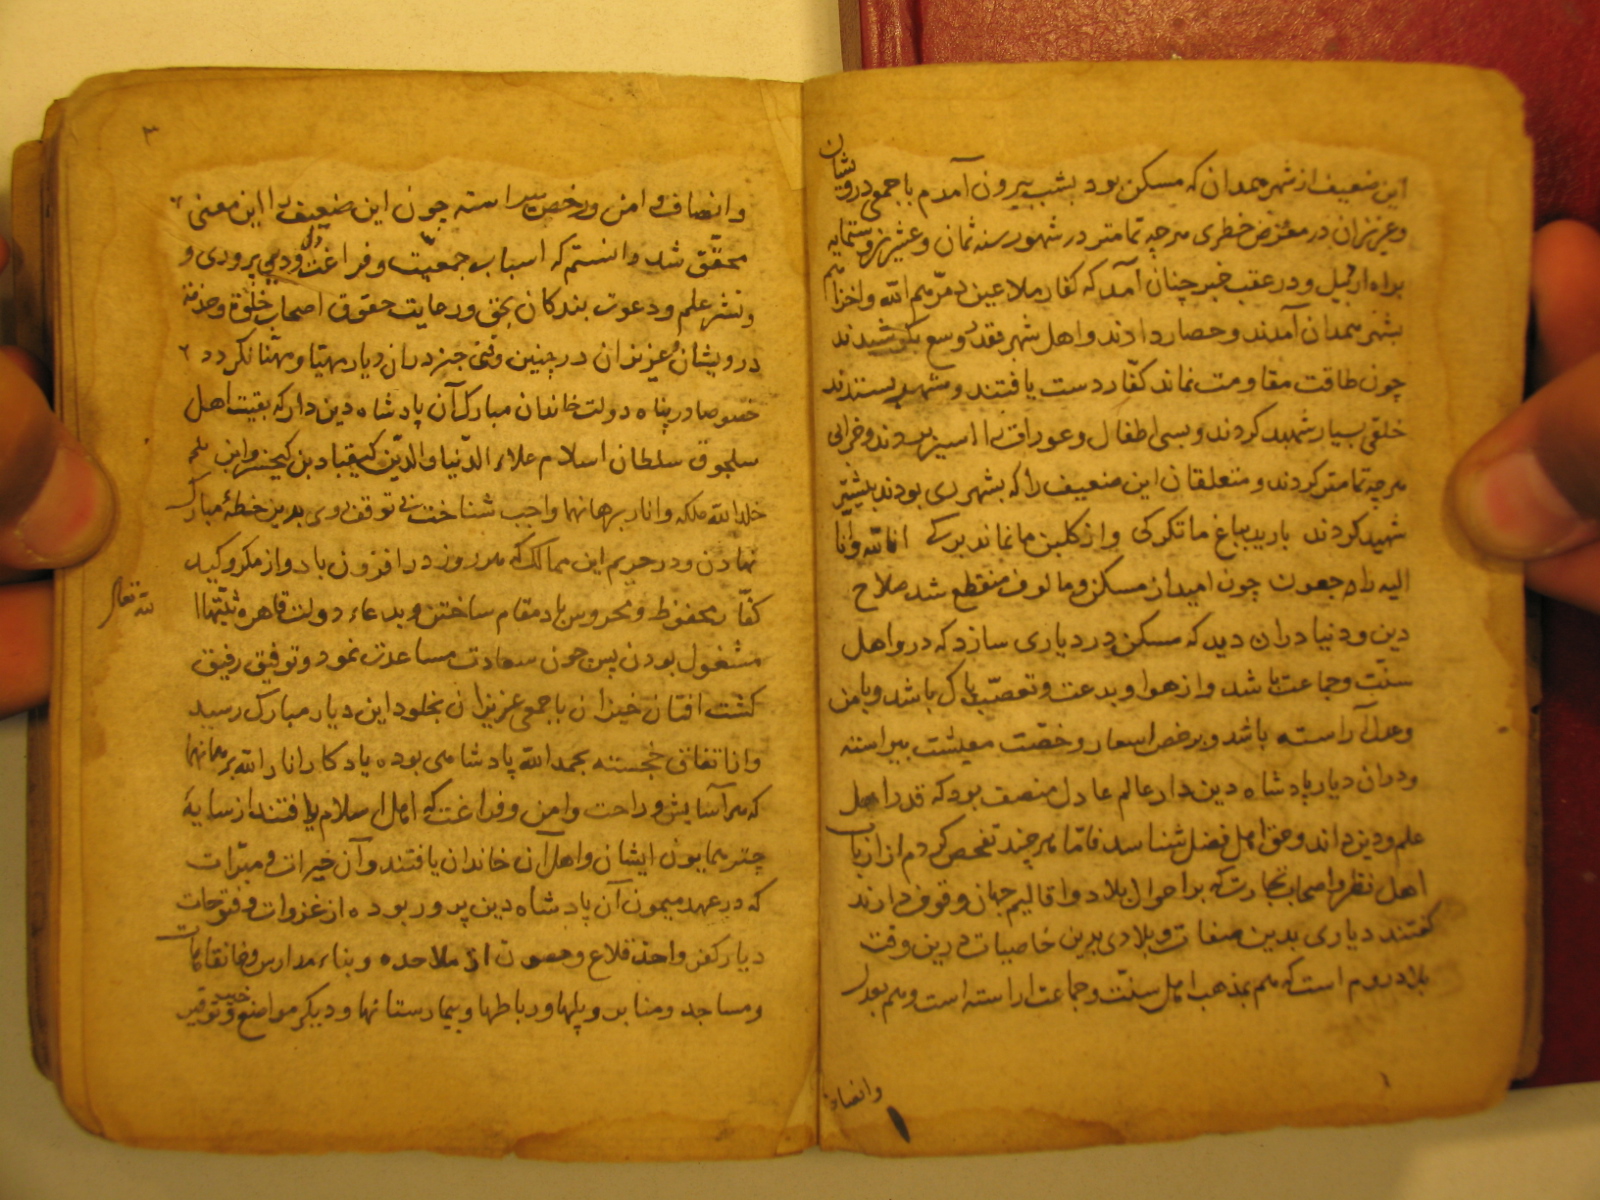 این ضعیف از شهر همدان که مسکن بود بشب بیرون آمدم با جمعی درویشان
و عزیزان در معرض خطری هرچه تمامتر در شهور سنه ثمان و عشرین و ستمایه
براه اربیل و در عقب خبر چنان آمد که کفار ملاعین دمرهم الله و اخزاهم
بشهر همدان آمدند و حصار دادند و اهل شهر بقدر وسع بکوشیدند
چون طاقت مقاومت نماند کفار دست یافتند و شهر بستدند
خلقی بسیار شهید کردند و بسی اطفال و عورات را اسیر بردند و خرابی
هرچه تمامتر کردند و متعلقان این ضعیف را که بشهر ری بودند بیشتر
شهید کردند بارید بباغ ما تکرکی وز کلبن ما نماند برکی انا لله و انا
الیه راجعون چون امید از مسکن و مالوف منقطع شد صلاح
دین و دنیا دران دید که مسکن در دیاری سازد که درو اهل
سنت و جماعت باشد و از هوا و بدعت و تعصب پاک باشد و بامن
و عدل آراسته باشد و برخص اسعار و خصب معیشت پیراسته
و دران دیار پادشاه دین دار عالم عادل منصف بود که قدر اهل
علم و دین داند و حق اهل فضل شناسد فاما هرچند تفحص کردم از ارباب
اهل نظر و اصحاب تجارت که بر احوال بلاد و اقالیم جهان وقوف دارند
کفتند دیاری بدین صفات و بلادی بدین خاصیات درین وقت
بلاد روم است که هم بمذهب اهل سنت و جماعت اراسته است و هم بعدل
وانصاف
۳
وانصاف و امن و رخص پیراسته چون این ضعیف را این معنی
محقق شد دانستم که اسباب جمعیت و فراغت دل و دین پروری و
و نشر علم و دعوت بندکان بحق و رعایت حقوق اصحاب خلوة و خدمت
درویشان و عزیزان در چنین وقتی جز دران دیار مهیا و مهنا نکردد
خصوصا در پناه دولت خاندان مبارک آن پادشاه دین دار که بقیت اهل
سلجوق سلطان اسلام علاء الدنیا والدین کیقباد بن کیخسرو
خلد الله ملکه و انار برهانهما واجب شناخت بی توقفی روی بدین خطهٔ مبارک
نهادن و در حریم این ممالک که هر روز در افزون باد و از مکر و کید
کفار محفوظ و محروس باد مقام ساختن و بدعاء دولت قاهره ثبتها
الله تعالی
مشغول بودن پس چون سعادت مساعدت نمود و توفیق رفیق
کشت افتان خیزان با جمعی عزیزان این دیار مبارک رسید
و از اتفاق خجسته بحمد الله پادشاهی بوده یادکار انار الله برهانهما
که هر آسایش و راحت و امن و فراغت که اهل اسلام یافتند از سایهٔ
چتر همایون ایشان و اهل آن خاندان یافتند و آن خیرات و مبرات
که در عهد میمون آن پادشاه دین پرور بوده از غزوات و فتوحات
دیار کفر و اخذ قلاع و حصون از ملاحده و بناء مدارس و خانقاهات
و مساجد و منابر و پلها و رباطها و بیمارستانها و دیکر مواضع خیر و توقیر